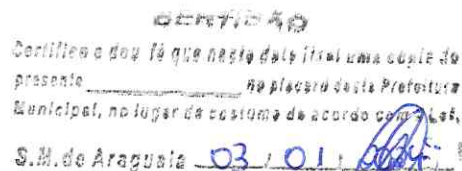 CERTIDÃO
Certifico e dou fé que nesta data fixei uma copia do
presente ____________ no placard desta Prefeitura
Municipal, no lugar de costume de acordo com a Lei.
S.M. do Araguaia 03 / 01 /